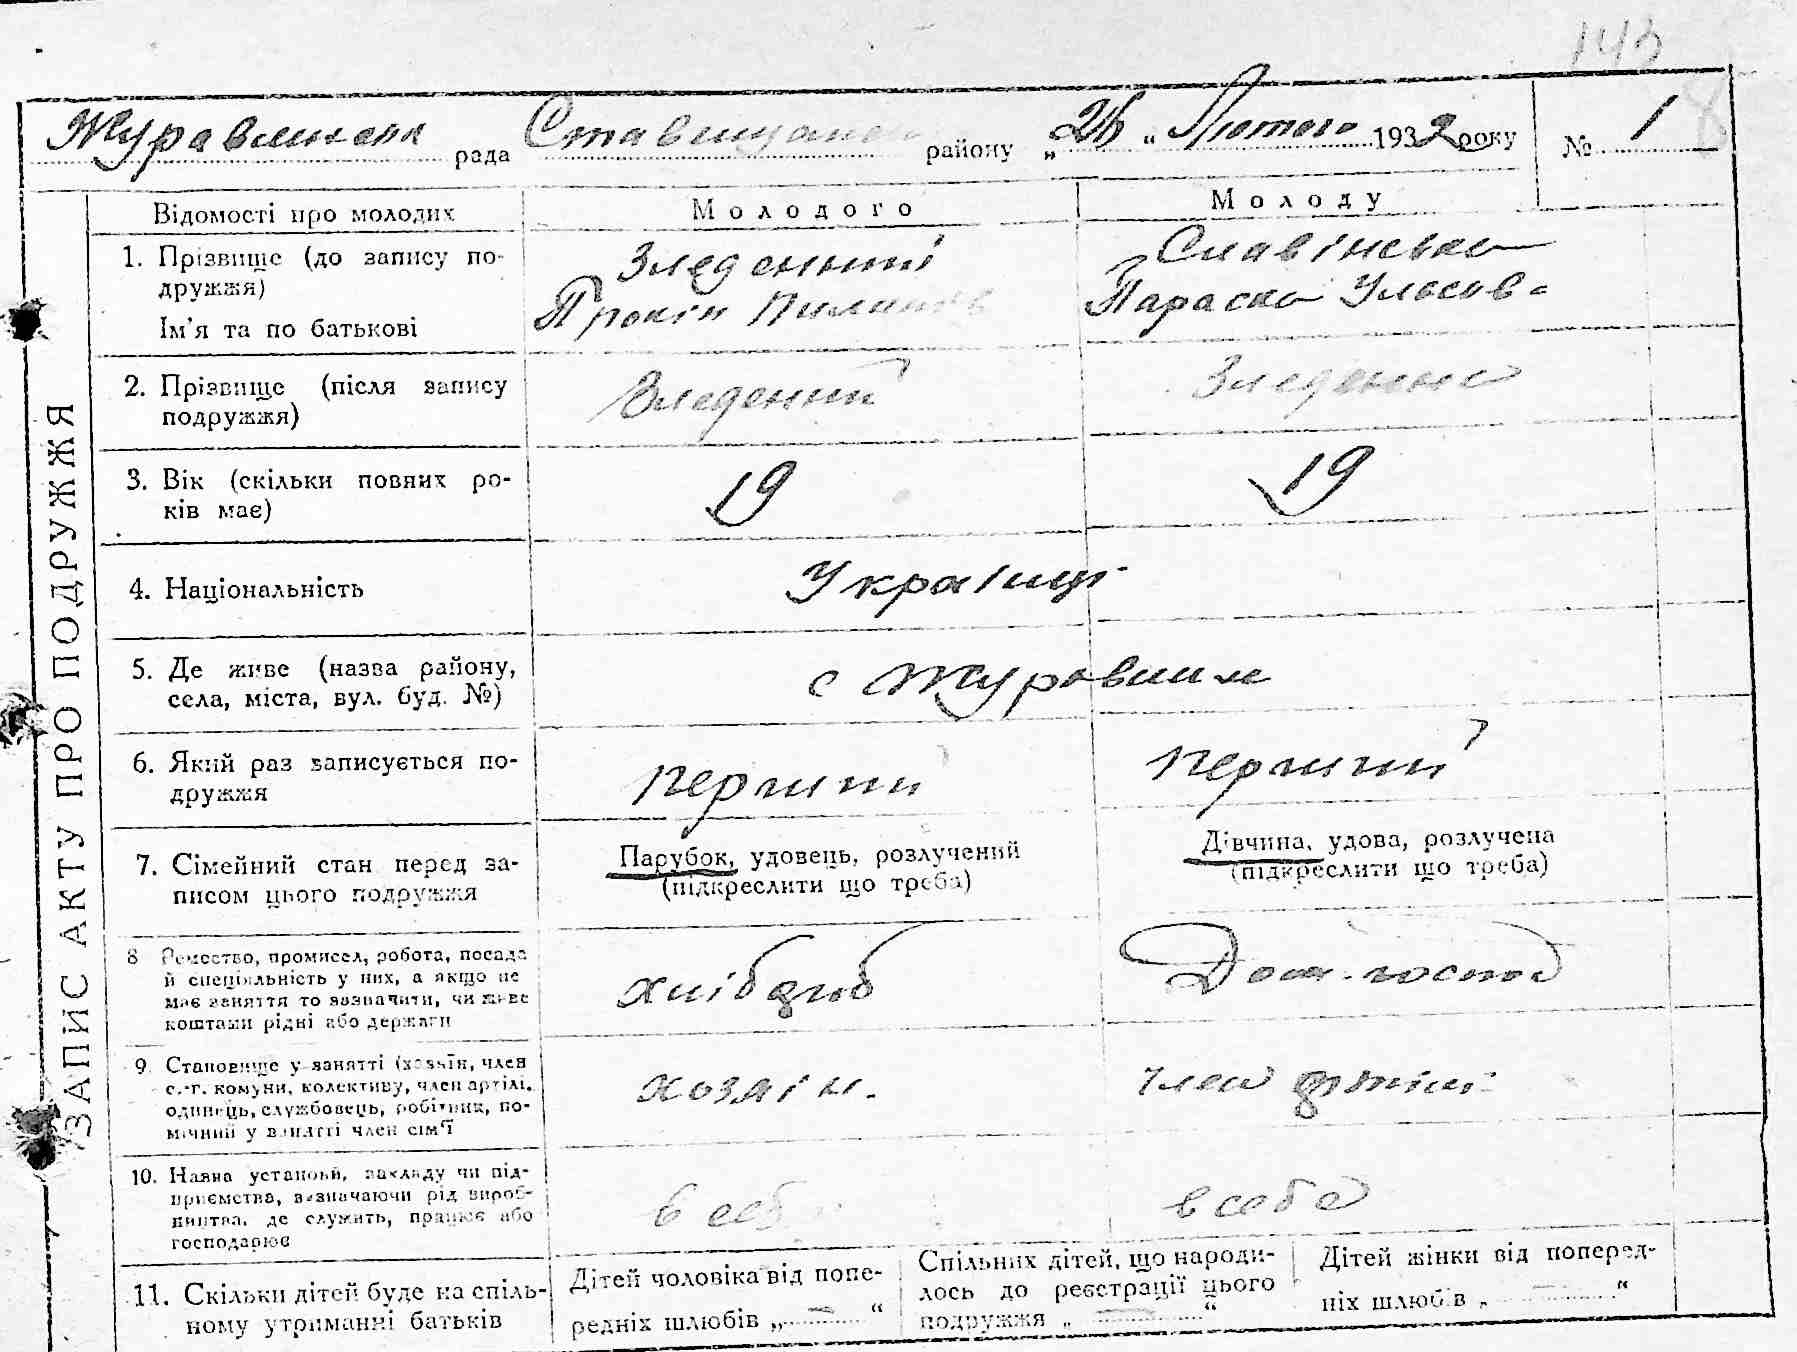 143
Журавлинська рада Ставищанськ району „26“ Лютого 1932 року № 1
8
ЗАПИС АКТУ ПРО ПОДРУЖЖЯ
Відомості про молодих
Молодого
Молоду
1. Прізвище (до запису по-
дружжя)
Ім'я та по батькові
Зледенний
Прокіп Пилипов
Славінська
Параска Уласова
2. Прізвище (після запису
подружжя)
Зледенний
Зледенна
3. Вік (скільки повних ро-
ків має)
19
19
4. Національність
Українці
5. Де живе (назва району,
села, міста, вул. буд. №)
с Журавлилі
6. Який раз записується по-
дружжя
перший
перший
7. Сімейний стан перед за-
писом цього подружжя
Парубок, удовець, розлучений
(підкреслити що треба)
Дівчина, удова, розлучена
(підкреслити що треба)
8 Ремество, промисел, робота, посада
й спеціяльність у них, а якщо не
має заняття то зазначити, чи живе
коштами рідні або держави
хлібороб
Дом. господ
9. Становище у занятті (хазяїн, член
с.-г. комуни, колективу, член артілі,
одинець, службовець, робітник, по-
мічний у занятті член сім'ї
хозяін.
член артілі
10. Назва установи, закладу чи під-
приємства, зазначаючи рід вироб-
ництва, де служить, працює або
господарює
в себ
в себе
11. Скільки дітей буде на спіль-
ному утриманні батьків
Дітей чоловіка від попе-
редніх шлюбів „ — “
Спільних дітей, що народи-
лось до реєстрації цього
подружжя „ — “
Дітей жінки від поперед-
ніх шлюбів „ — “